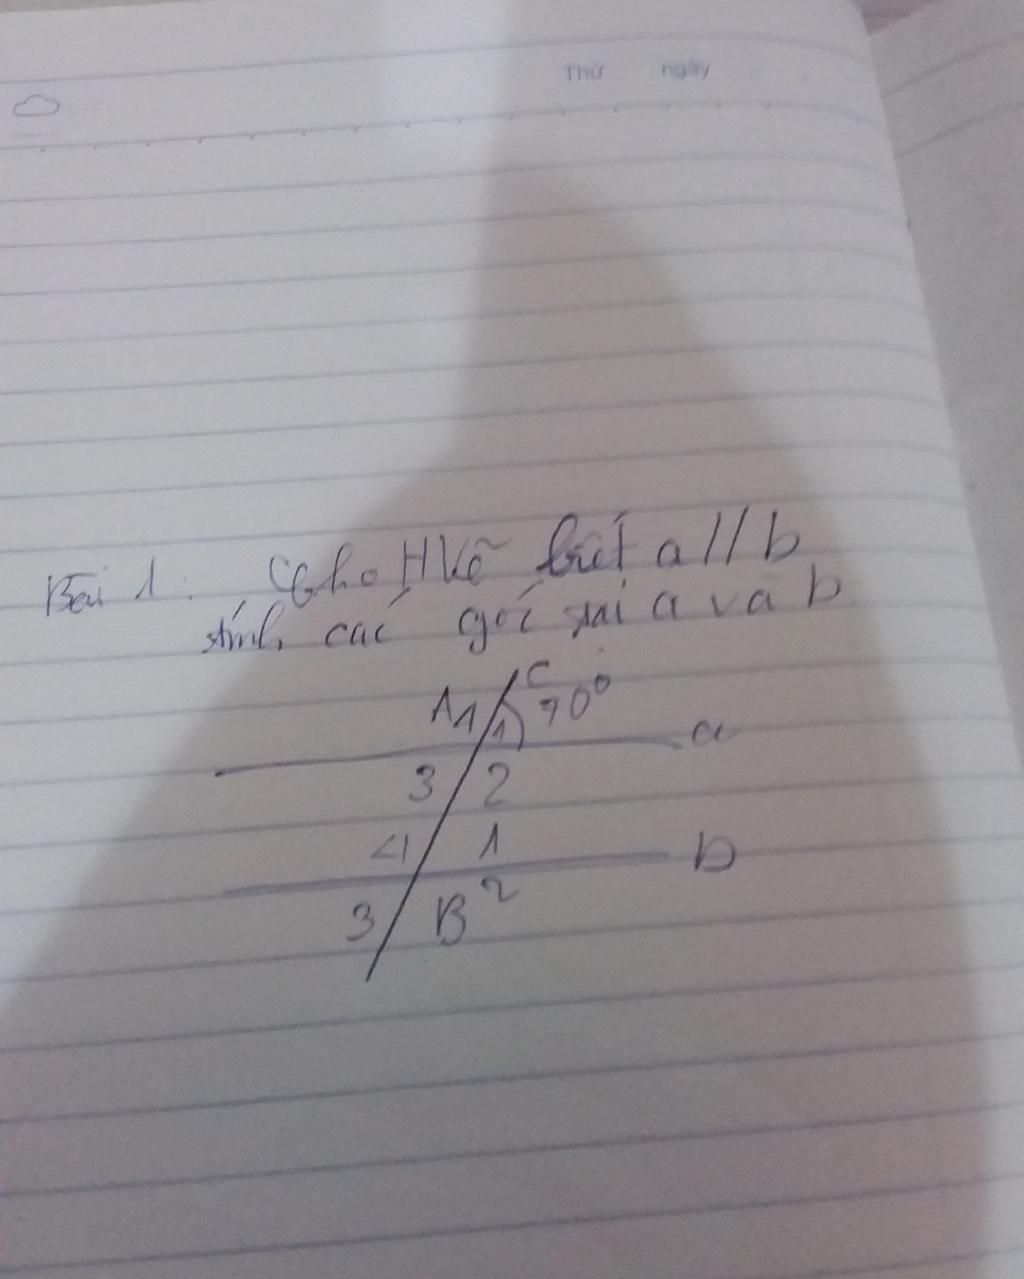 Thứ ngày
Bài 1: Cho H Vẽ biết a // b
tính các góc tại a và b
c
A 1 1 70°
a
3 2
4 1
b
3 B 2